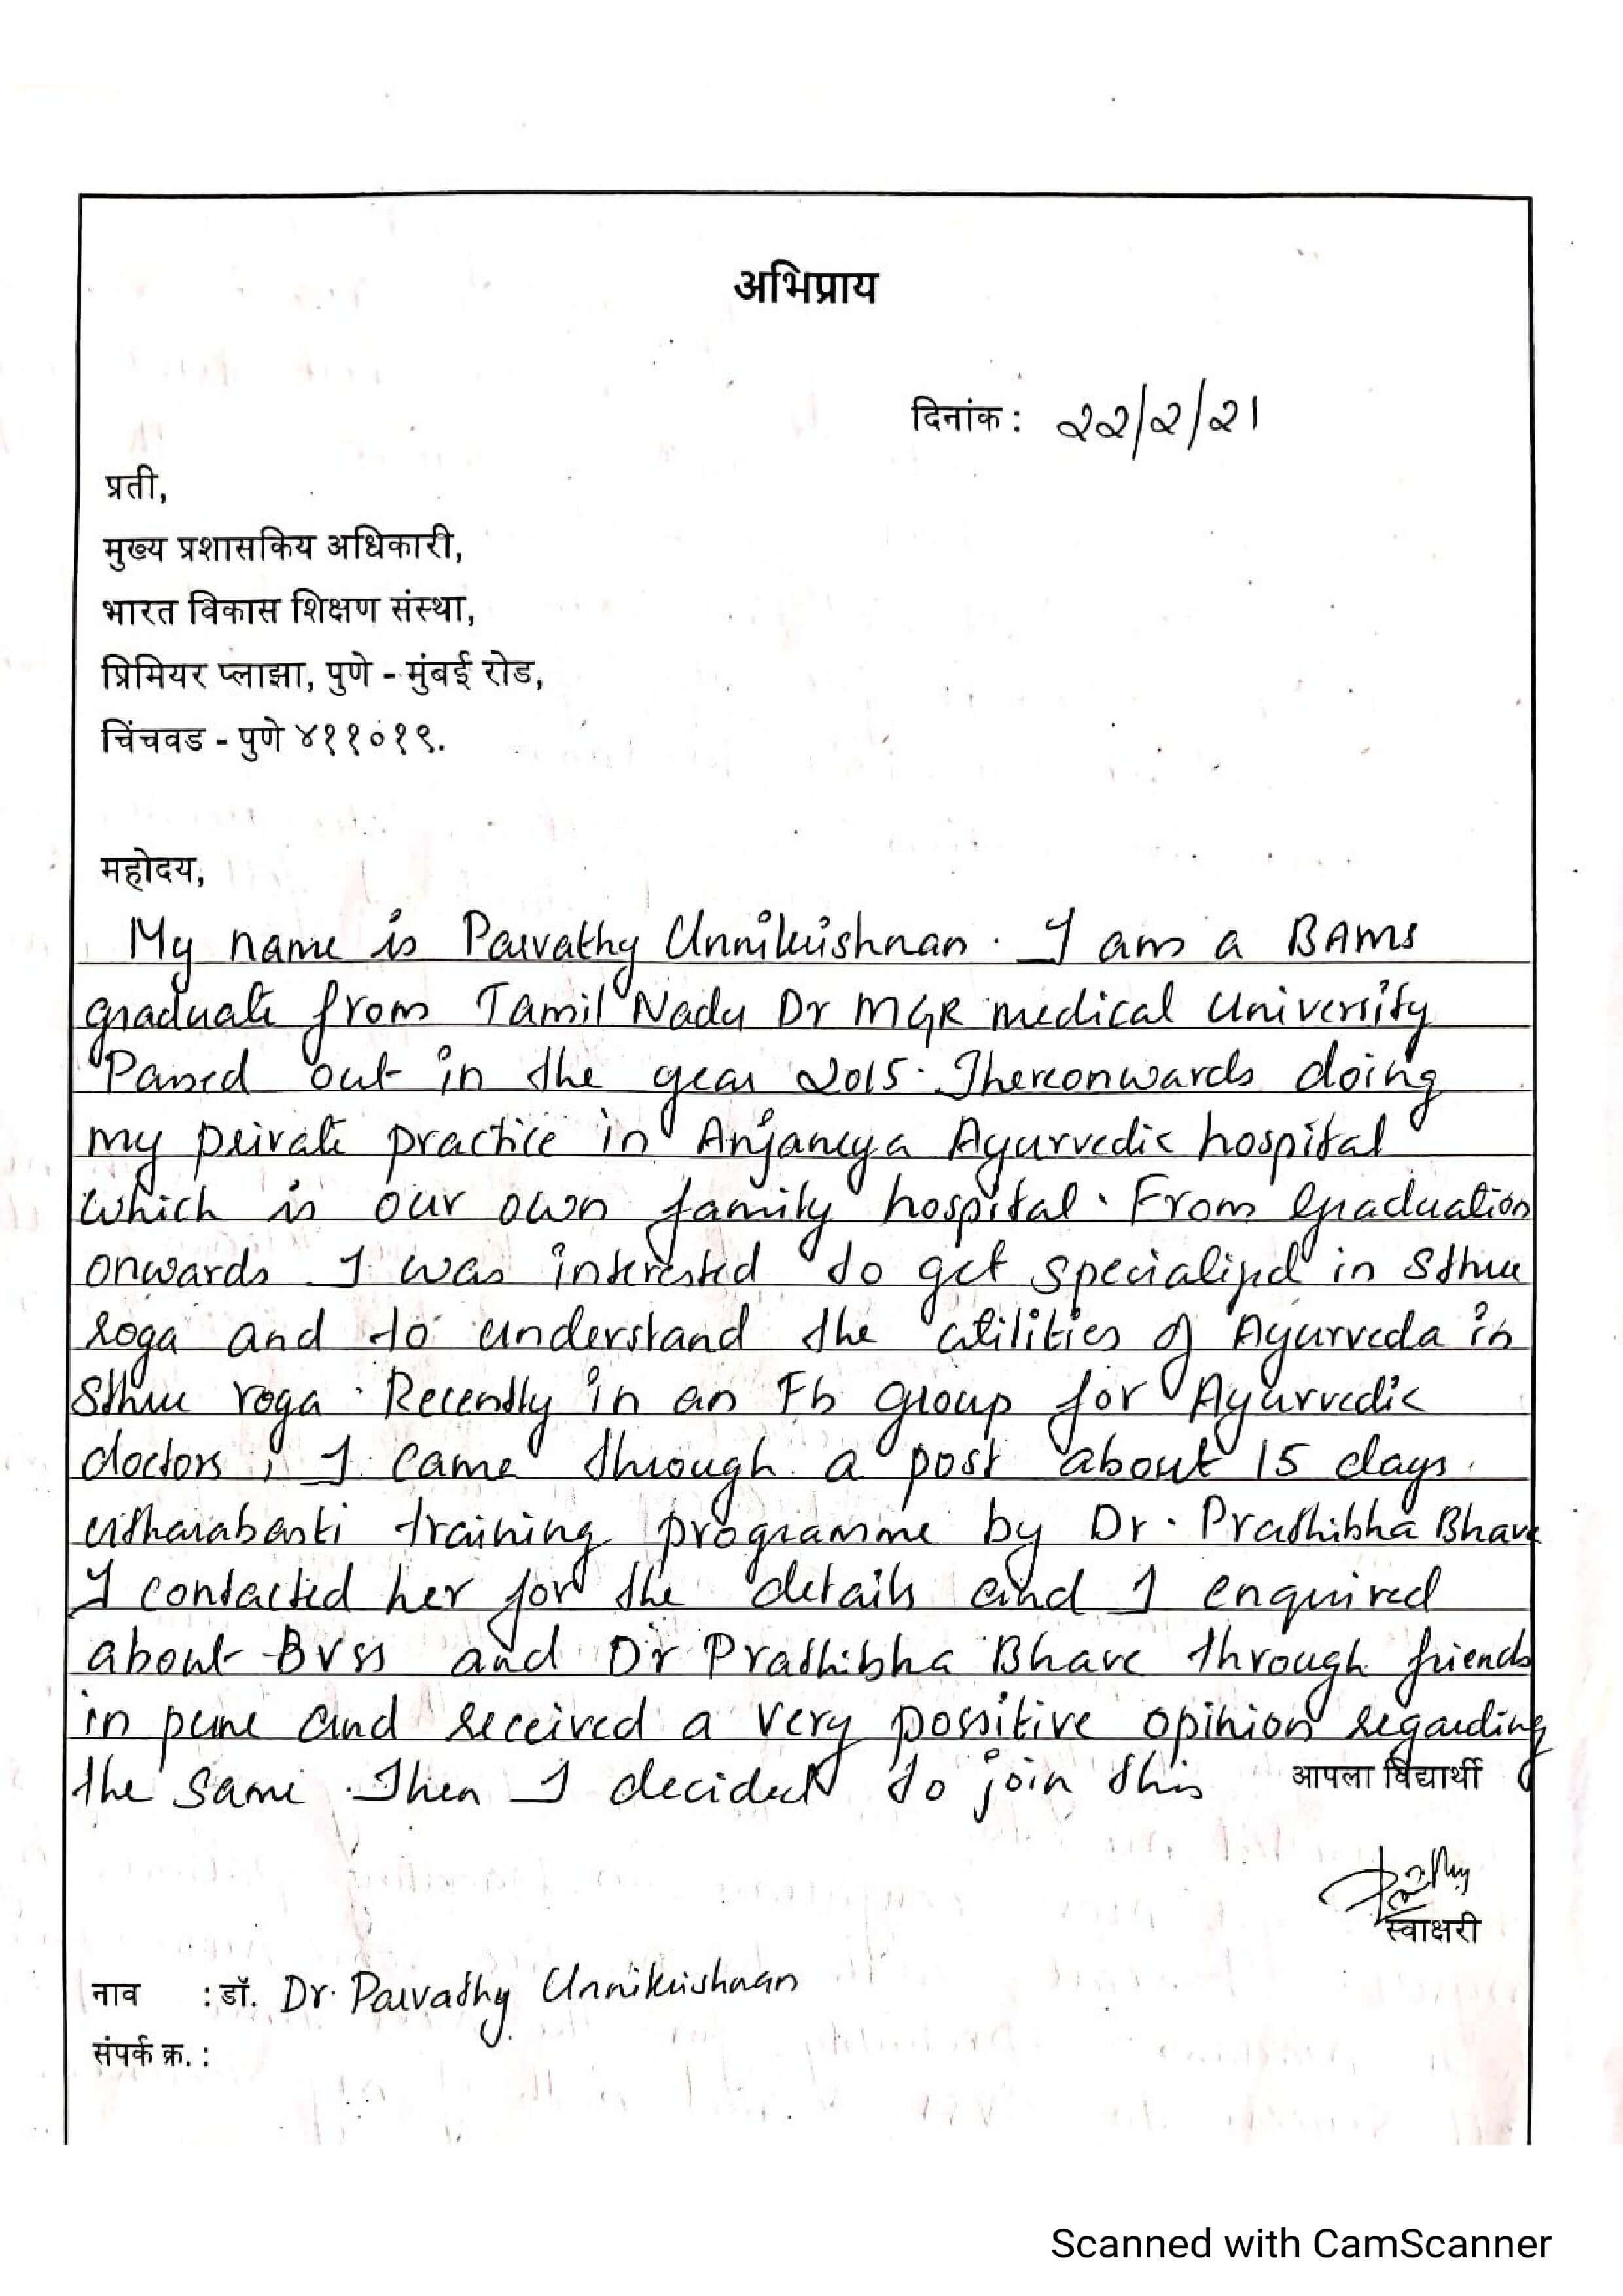 अभिप्राय
दिनांक : 22/2/21
प्रती,
मुख्य प्रशासकिय अधिकारी,
भारत विकास शिक्षण संस्था,
प्रिमियर प्लाझा, पुणे - मुंबई रोड,
चिंचवड - पुणे ४११०१९.
महोदय,
My name is Parvathy Unnikrishnan. I am a BAMS
graduate from Tamil Nadu Dr MGR medical University
Passed out in the year 2015. Thereonwards doing
my private practice in Anjaneya Ayurvedic hospital
which is our own family hospital. From graduation
onwards I was interested to get specialized in Sthree
roga and to understand the utilities of Ayurveda in
Sthree roga. Recently in an Fb group for Ayurvedic
doctors, I came through a post about 15 days
utharabasti training programme by Dr. Prathibha Bhave
I contacted her for the details and I enquired
about BVSS and Dr Prathibha Bhave through friends
in pune and received a very possitive opinion regarding
the same. Then I decided to join this
आपला विद्यार्थी
स्वाक्षरी
नाव : डॉ. Dr. Parvathy Unnikrishnan
संपर्क क्र. :
Scanned with CamScanner